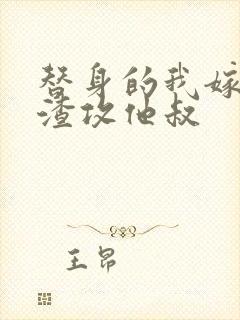 替身的我嫁
渣攻他叔
王昂